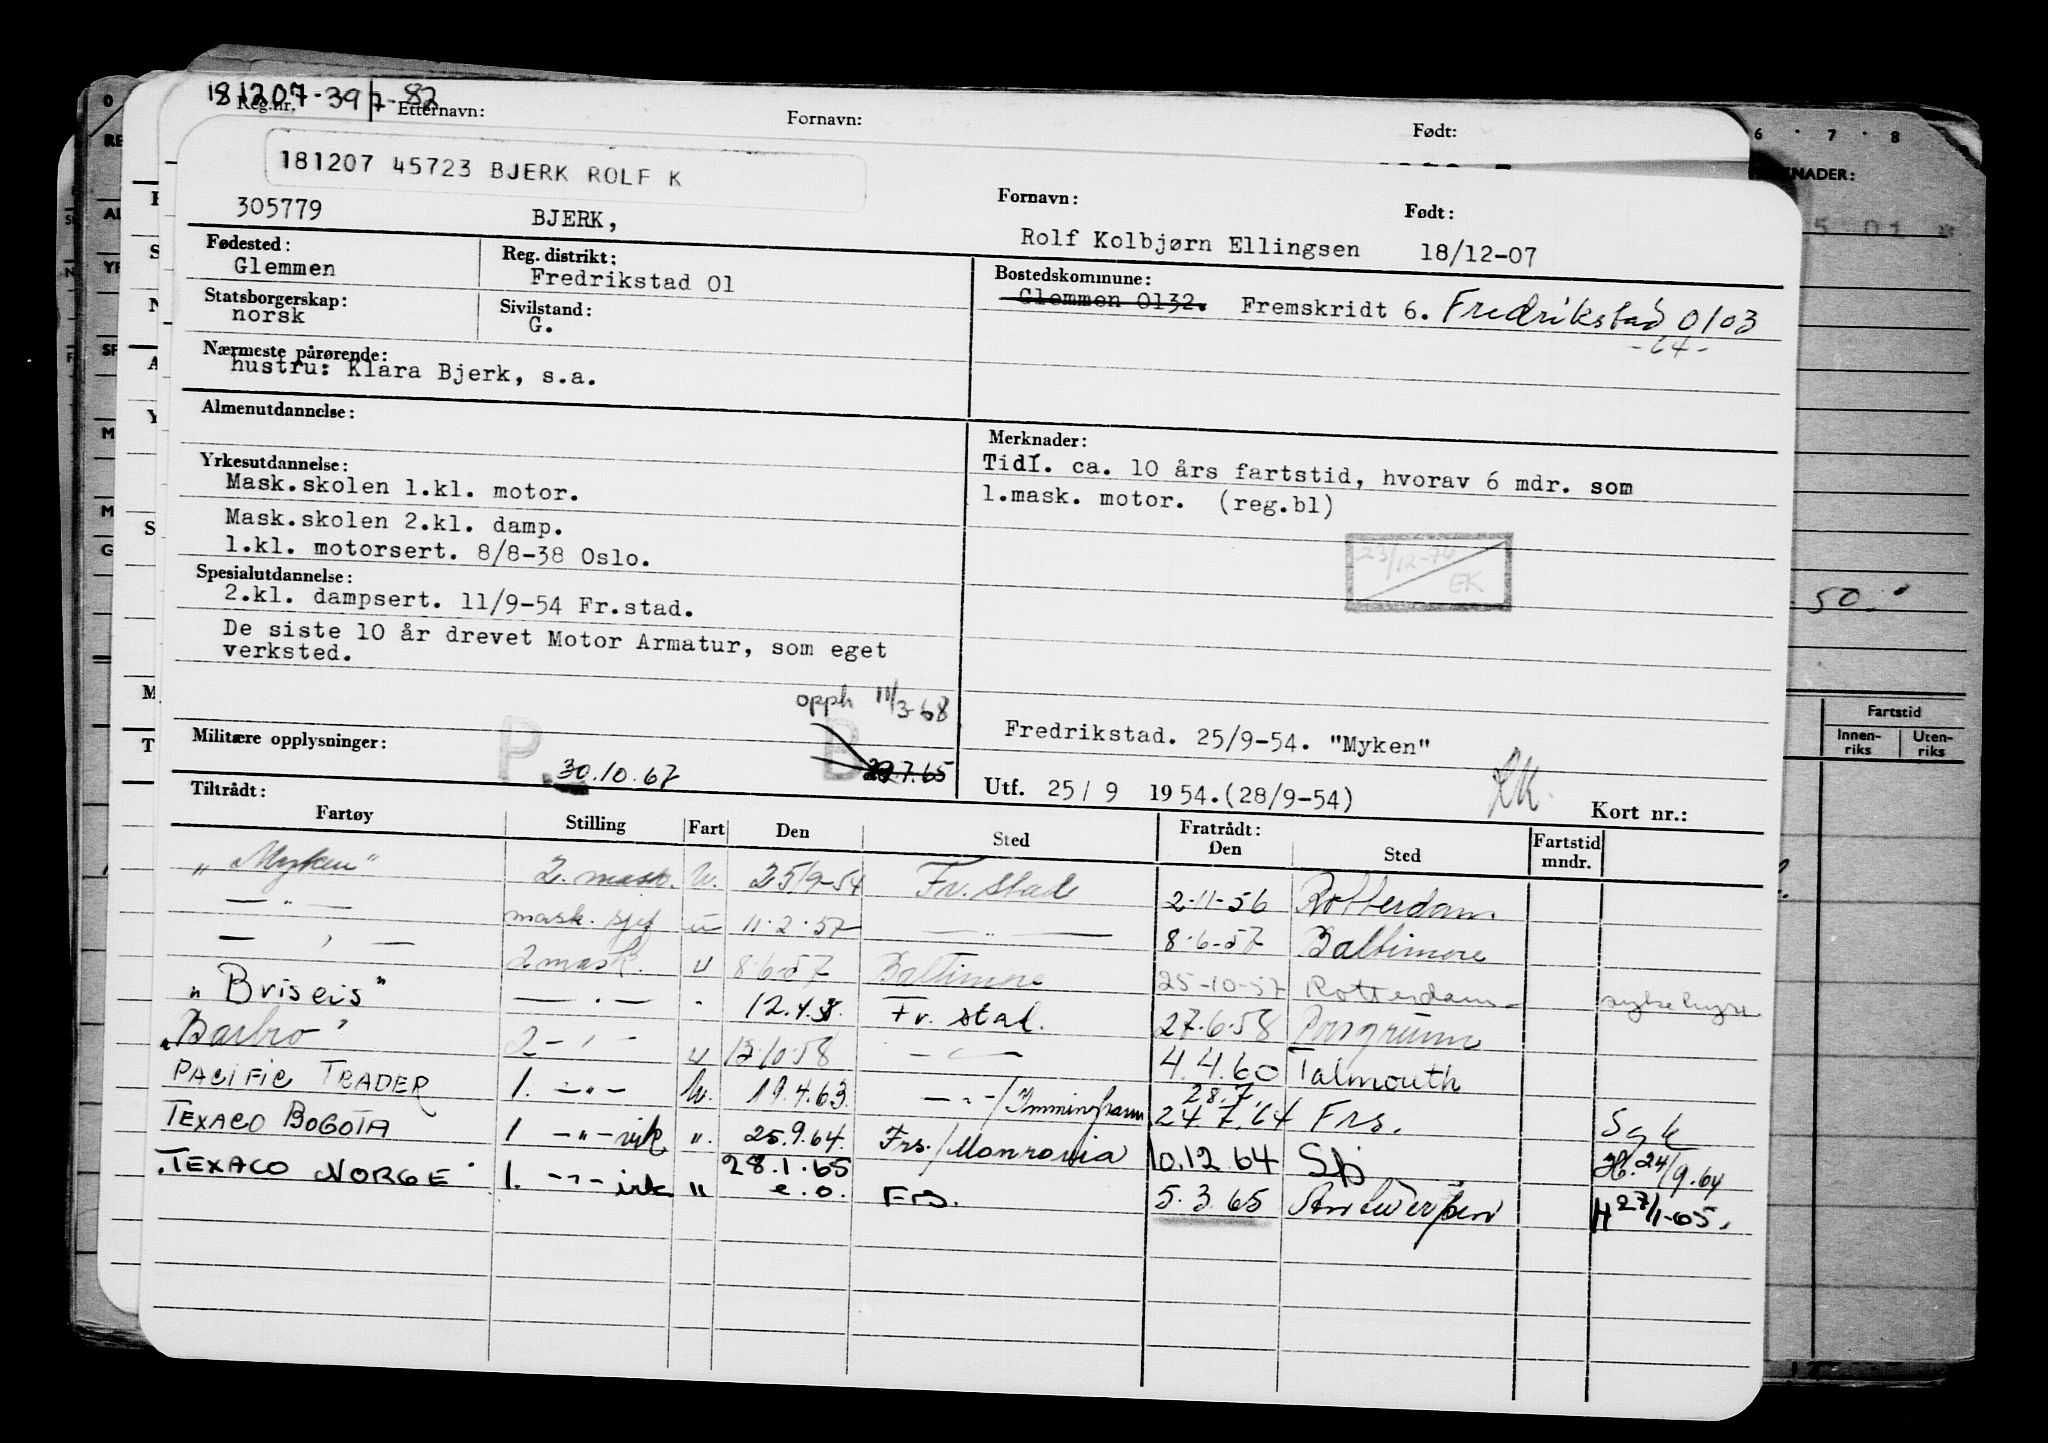 181207-397-82
Reg.nr. Etternavn: Fornavn: Født:
181207 45723 BJERK ROLF K
305779 BJERK, Fornavn: Rolf Kolbjørn Ellingsen Født: 18/12-07
Fødested: Glemmen Reg. distrikt: Fredrikstad 01 Bostedskommune: Glemmen 0132. Fremskridt 6. Fredrikstad 0103
-64-
Statsborgerskap: norsk Sivilstand: G.
Nærmeste pårørende:
hustru: Klara Bjerk, s.a.
Almenutdannelse:
Merknader:
Tidl. ca. 10 års fartstid, hvorav 6 mdr. som
1.mask. motor. (reg.bl)
23/12-74
EK
Yrkesutdannelse:
Mask.skolen 1.kl. motor.
Mask.skolen 2.kl. damp.
1.kl. motorsert. 8/8-38 Oslo.
Spesialutdannelse:
2.kl. dampsert. 11/9-54 Fr.stad.
De siste 10 år drevet Motor Armatur, som eget
verksted.
opph 11/3-68
Militære opplysninger: P. 30.10.67 B 7.65
Fredrikstad. 25/9-54. "Myken"
Utf. 25/9 1954.(28/9-54) RK. Kort nr.:
Tiltrådt: Fartøy Stilling Fart Den Sted Fratrådt: Den Sted Fartstid mndr.
"Myken" 2. mask. U. 25/9-54 Fr. stad 2-11-56 Rotterdam
— " — mask. sjef u 11-2-57 — " — 8-6-57 Baltimore
— " — 2 mask. u 8-6-57 Baltimore 25-10-57 Rotterdam
"Briseis" — " — " 12.4.58. Fr. stad. 27.6.58 Porsgrunn
"Barbro" 2 - " - u 17.10.58 — " — 4.4.60 Falmouth
PACIFIC TRADER 1. — " — U. 19.4.63. — " — / Immingham 28.7. 24.7.64 Frs. Syk
TEXACO BOGOTA 1 — " — vik ". 25.9.64. Frs. / Monrovia 10.12.64 Sbj 24/9.64
"TEXACO NORGE" 1. — " — vik " 28.1.65 e.o. Frs. 5.3.65 Antwerpen H 27/1-65.
NADER:
6 · 7 · 8
50.
Fartstid
Innen-riks Uten-riks